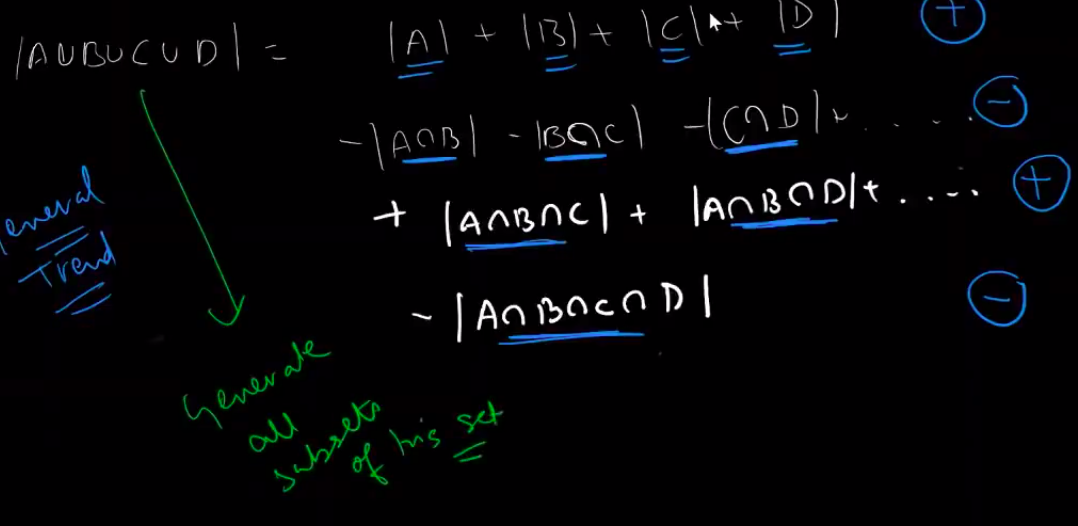 |A∪B∪C∪D| = |A| + |B| + |C| + |D| +
-|A∩B| - |B∩C| -|C∩D|+ . . . . . . -
+ |A∩B∩C| + |A∩B∩D|+ . . . . +
- |A∩B∩C∩D| -
General
Trend
Generate
all
subsets
of this set